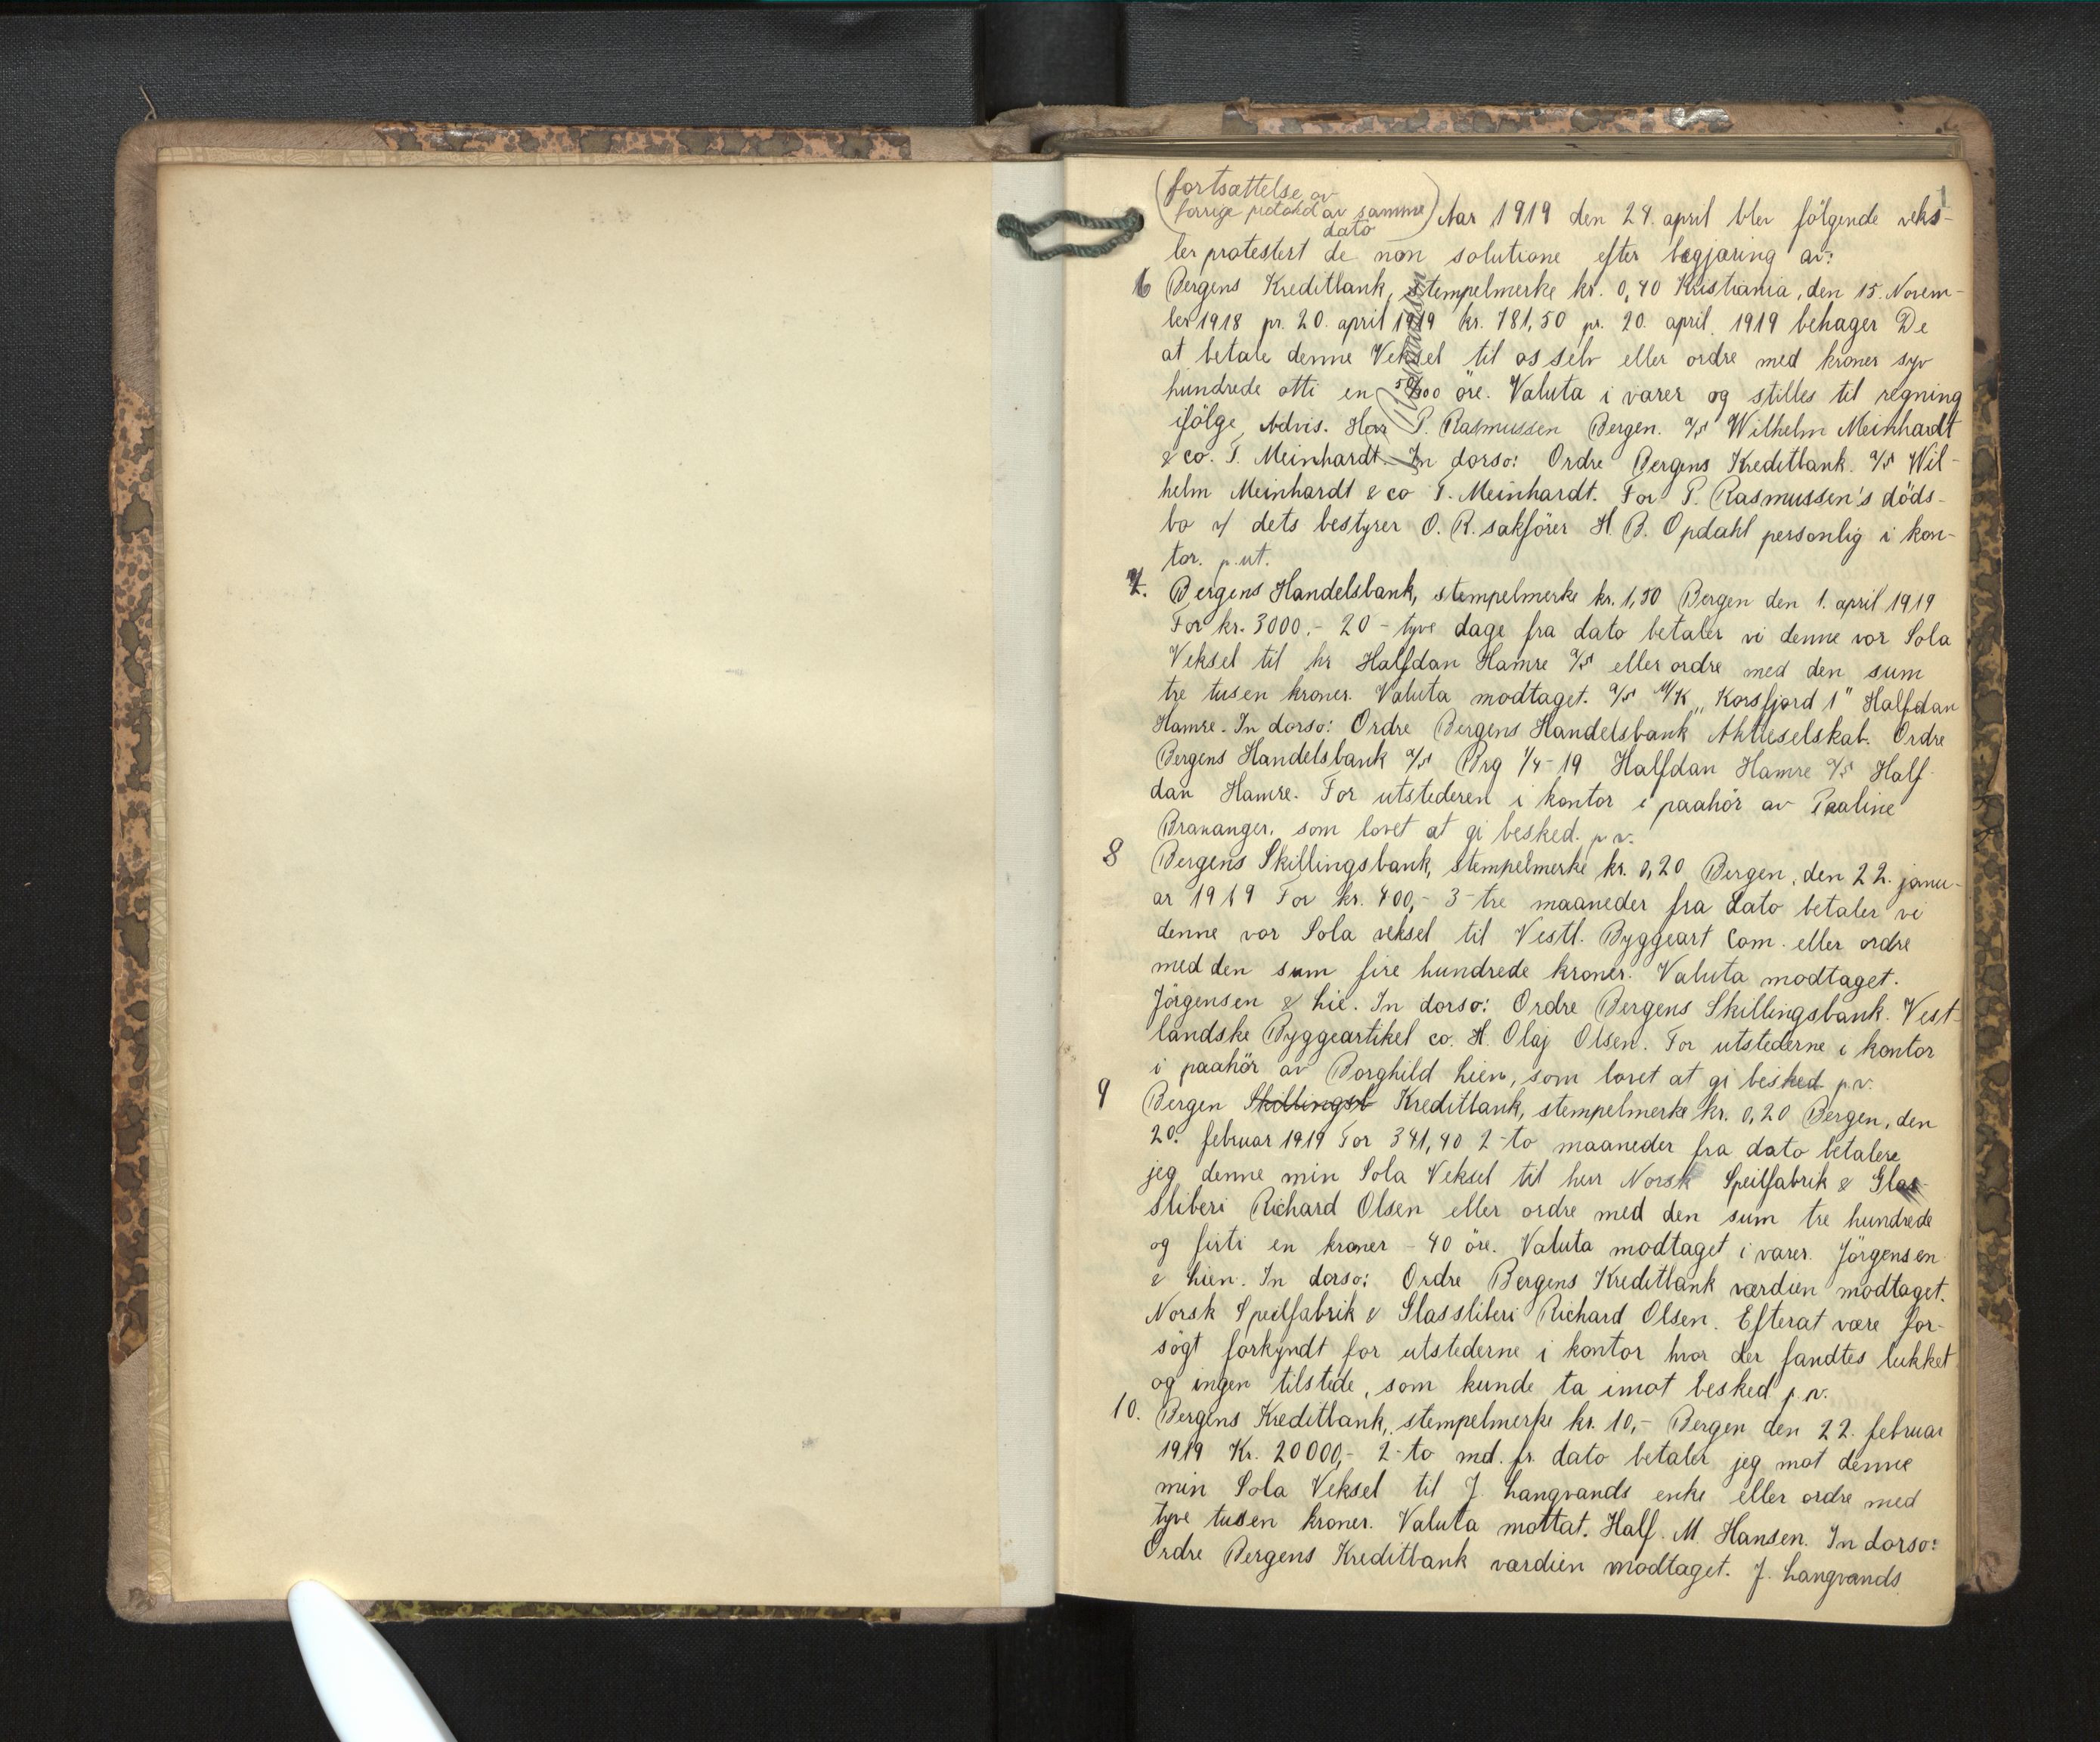 1
(fortsættelse av
forrige protokol av samme
dato) Aar 1919 den 24. april blev følgende veks-
ler protestert de non solutione efter begjæring av:
6 Bergens Kreditbank, stempelmerke kr. 0,40 Kristiania, den 15. Novem-
ber 1918 pr. 20. april 1919 kr. 781,50 pr. 20. april 1919 behager De
at betale denne Veksel til os selv eller ordre med kroner syv
hundrede otti en 50/100 öre. Valuta i varer og stilles til regning
ifölge Advis. Herr P. Rasmussen Bergen. A/S Wilhelm Meinhardt
& co. T. Meinhardt. In dorso: Ordre Bergens Kreditbank. A/S Wil-
helm Meinhardt & co T. Meinhardt. For P. Rasmussen's döds-
bo v/ dets bestyrer O. R. sakförer H. B. Opdahl personlig i kon-
tor. p. ut.
7. Bergens Handelsbank, stempelmerke kr. 1,50 Bergen den 1. april 1919
For kr. 3000.- 20 - tyve dage fra dato betaler vi denne vor Sola
Veksel til hr Halfdan Hamre A/S eller ordre med den sum
tre tusen kroner. Valuta modtaget. A/S M/K „Korsfjord 1" Halfdan
Hamre. In dorso: Ordre Bergens Handelsbank Aktieselskab. Ordre
Bergens Handelsbank A/S Brg 1/4-19 Halfdan Hamre A/S Half-
dan Hamre. For utstederen i kontor i paahör av Paaline
som lovet at gi besked. p. v.
8 Bergens Skillingsbank, stempelmerke kr. 0,20 Bergen, den 22. janu-
ar 1919 For kr. 400,- 3-tre maaneder fra dato betaler vi
denne vor Sola veksel til Vestl. Byggeart Com. eller ordre
med den sum fire hundrede kroner. Valuta modtaget.
Jörgensen & Lie. In dorso: Ordre Bergens Skillingsbank. Vest-
landske Byggeartikel co. H. Olaf Olsen. For utstederne i kontor
i paahör av Borghild Lien, som lovet at gi besked p. v.
9 Bergen Skillingsb Kreditbank, stempelmerke kr. 0,20 Bergen, den
20. februar 1919 For 341,40 2-to maaneder fra dato betalere
jeg denne min Sola Veksel til herr Norsk Speilfabrik & Glas-
sliberi Richard Olsen eller ordre med den sum tre hundrede
og firti en kroner - 40 öre. Valuta modtaget i varer. Jörgensen
& Lien. In dorso: Ordre Bergens Kreditbank værdien modtaget.
Norsk Speilfabrik & Glassliberi Richard Olsen. Efterat være for-
sögt forkyndt for utstederne i kontor hvor der fandtes lukket
og ingen tilstede, som kunde ta imot besked p. v.
10. Bergens Kreditbank, stempelmerke kr. 10,- Bergen den 22. februar
1919 Kr. 20000,- 2-to md. fr. dato betaler jeg mot denne
min Sola Veksel til J. Langvands enke eller ordre med
tyve tusen kroner. Valuta mottat. Half. M. Hansen. In dorso:
Ordre Bergens Kreditbank værdien modtaget. J. Langvands